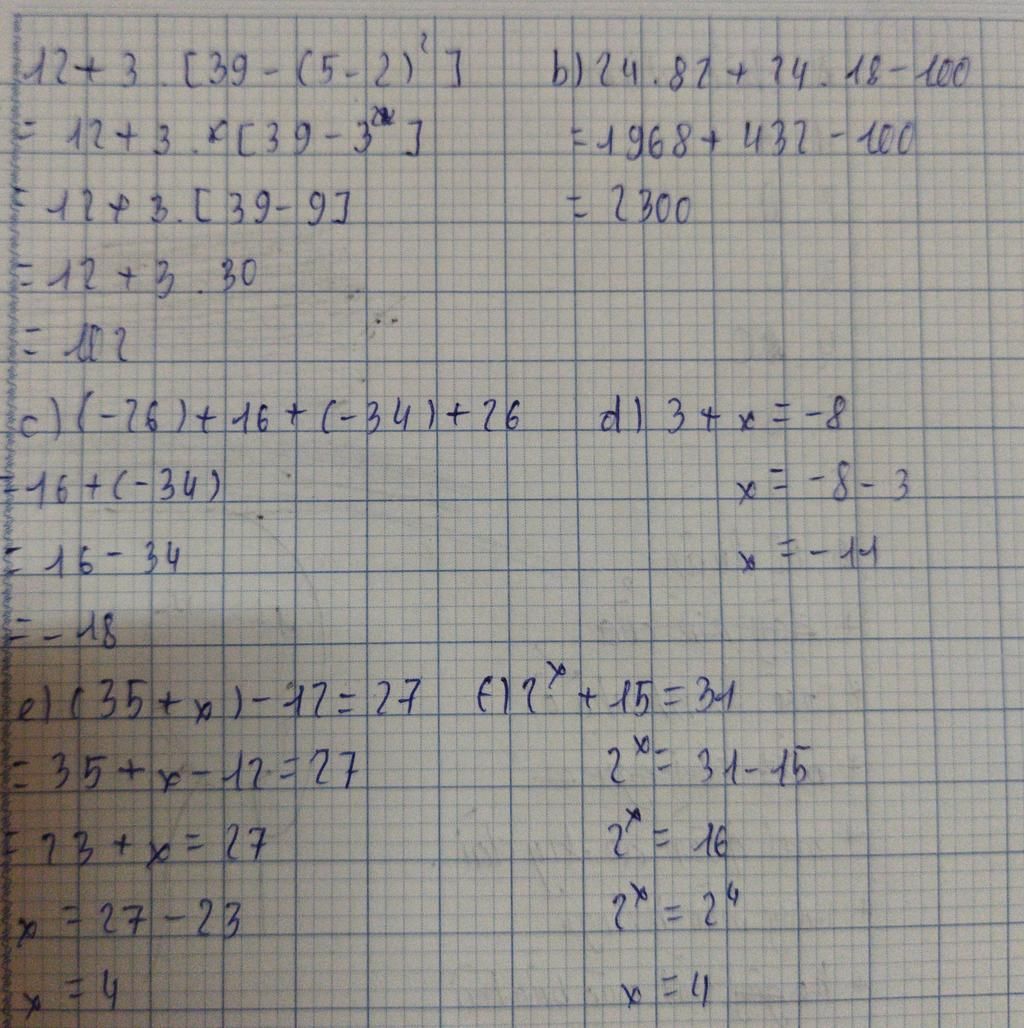 12 + 3 . [39 - (5 - 2)²]
= 12 + 3 . [39 - 3²]
= 12 + 3 . [39 - 9]
= 12 + 3 . 30
= 102
b) 24 . 82 + 24 . 18 - 100
= 1968 + 432 - 100
= 2300
c) (-26) + 16 + (-34) + 26
= 16 + (-34)
= 16 - 34
= - 18
d) 3 + x = -8
x = -8 - 3
x = - 11
e) (35 + x) - 12 = 27
= 35 + x - 12 = 27
= 23 + x = 27
x = 27 - 23
x = 4
f) 2ˣ + 15 = 31
2ˣ = 31 - 15
2ˣ = 16
2ˣ = 2⁴
x = 4